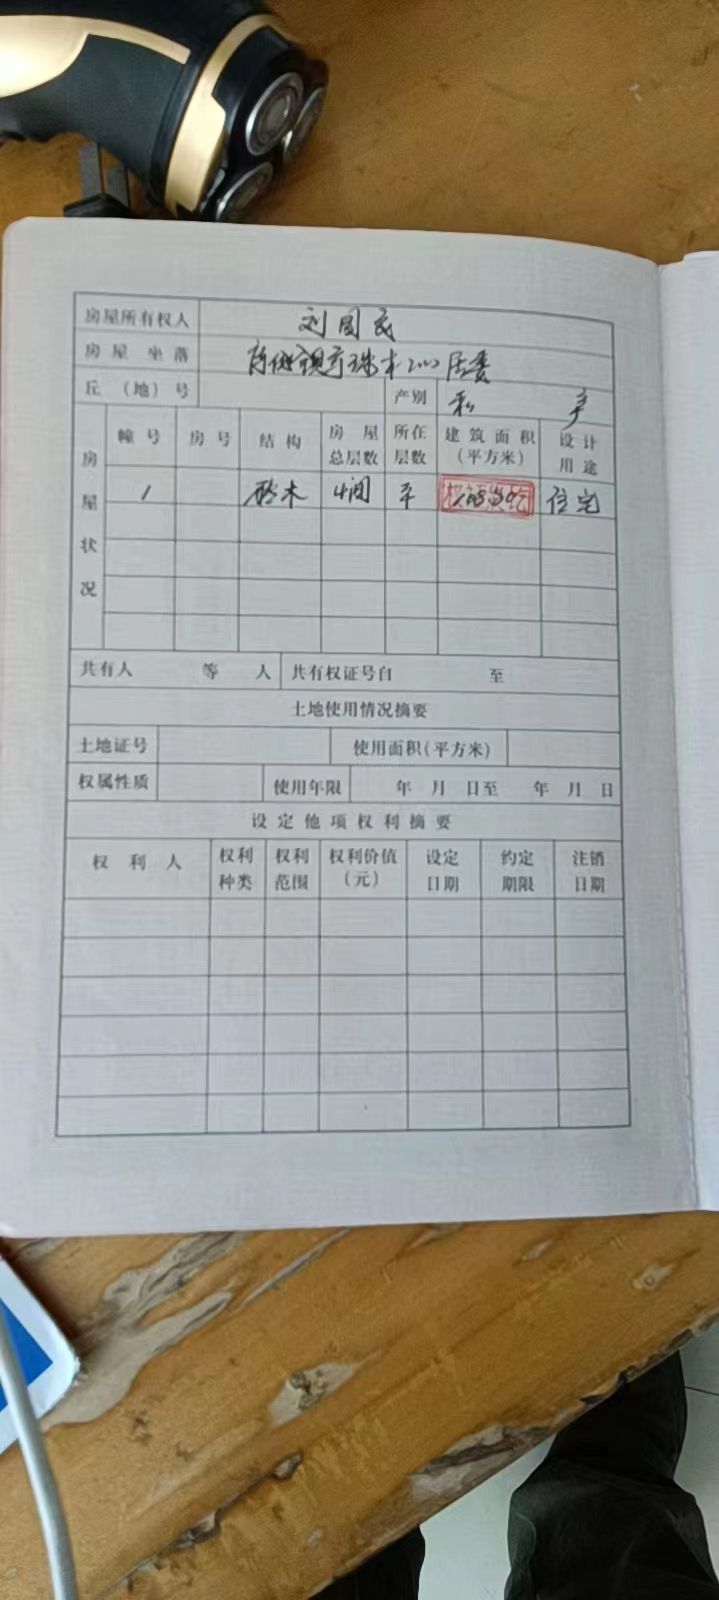 房屋所有权人 刘国民
房屋坐落 镇 居委
丘(地)号 产别 私产
房屋状况 幢号 房号 结构 房屋总层数 所在层数 建筑面积(平方米) 设计用途
1 砖木 4间 平 住宅
共有人 等 人 共有权证号自 至
土地使用情况摘要
土地证号 使用面积(平方米)
权属性质 使用年限 年 月 日至 年 月 日
设定他项权利摘要
权利人 权利种类 权利范围 权利价值(元) 设定日期 约定期限 注销日期